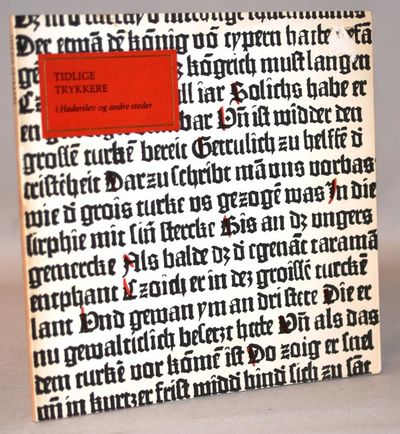 TIDLIGE
TRYKKERE
i Haderslev og andre steder
Der etwā dē kōnig vō cypern
kōgrich must langen
iar Solichs habe er
bar Vn̄ ist widder den
grosſē turkē bereit Getrulich zu helffē d̄
cristēheit Darzu schribt mā vns vorbas
wie d̄ grois turke vs gezogē was In die
mit sin̄ stercke Bis an dz vngers
gemercke Als balde dz d̄
Czoich er in dez groisſē turckē
lant Vnd gewan ym an dri stete Die er
nu gewalticlich besetzt hette Vn̄ als das
dem turkē vor kōmē ist Do zoig er snel
vn̄ in kurtzer frist widd hind sich zu